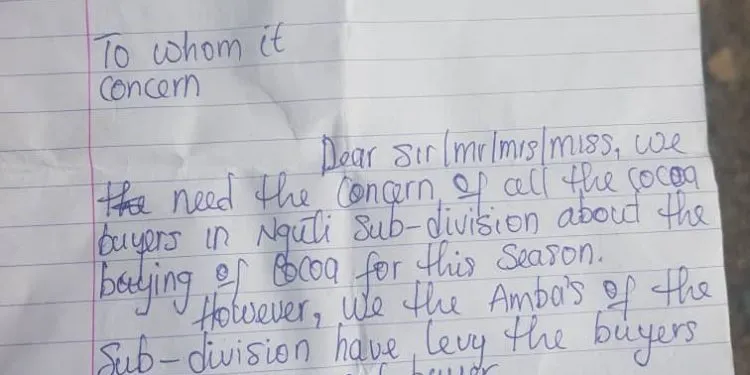 To whom it
concern
Dear Sir/mr/mrs/miss, we
the need the concern of all the cocoa
buyers in Nguti Sub-division about the
buying of Cocoa for this Season.
However, we the Amba's of the
Sub-division have levy the buyers